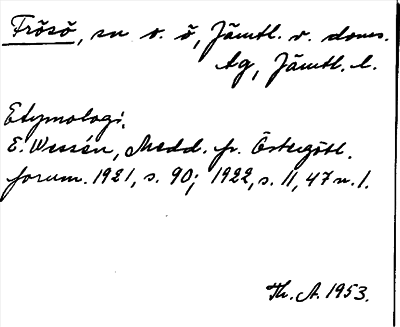 Frösö, sn o. ö, Jämtl. v. doms.
tg, Jämtl. l.
Etymologi.
E. Wessén, Medd. fr. Östergötl.
fornm. 1921, s. 90; 1922, s. 11, 47 n. 1.
Th. A. 1953.